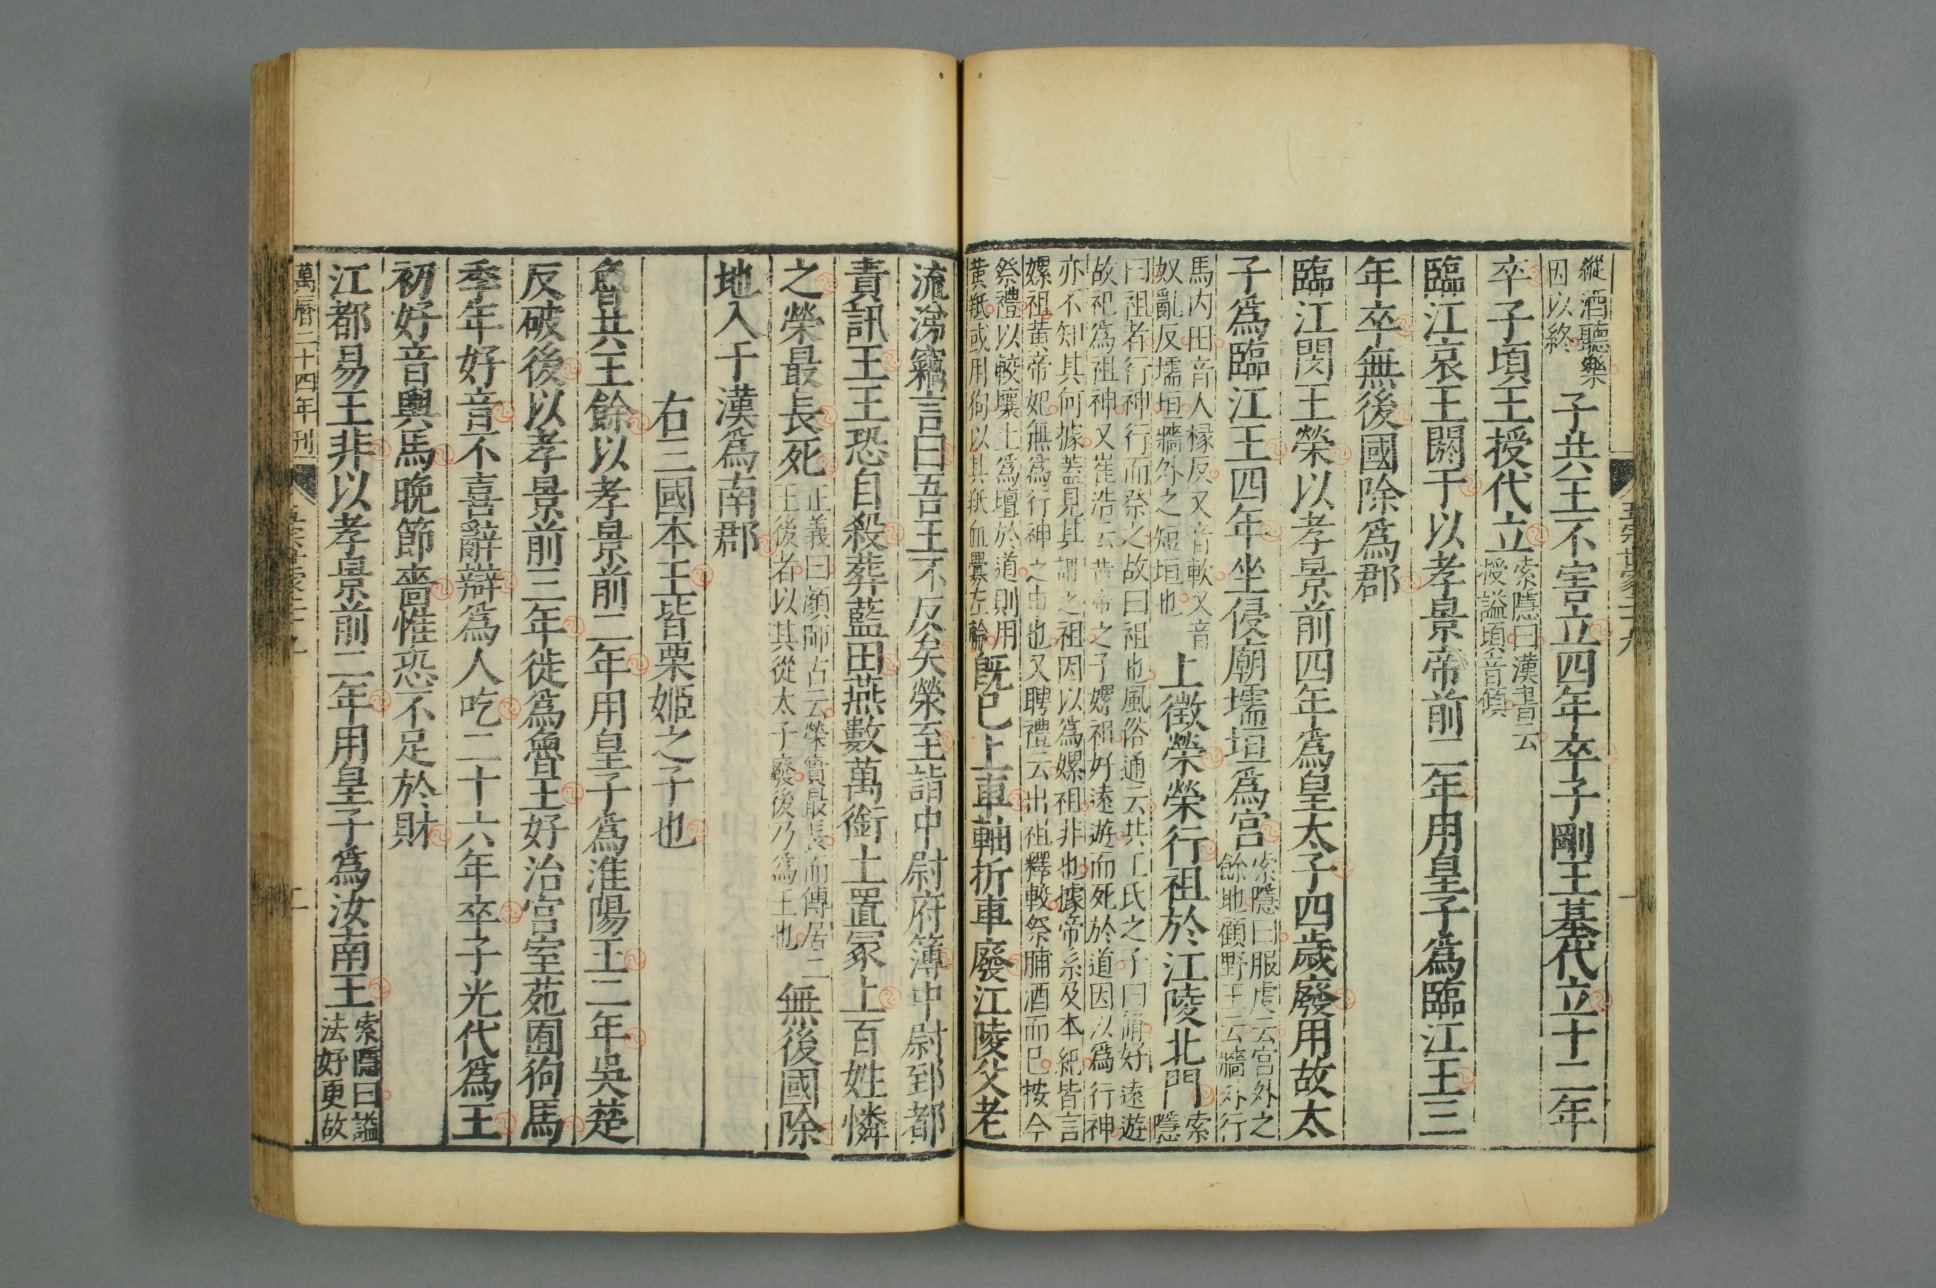 縱酒聽樂因以終子共王不害立四年卒子剛王基代立十二年
卒子頃王授代立索隱曰漢書云授謚頃音傾
臨江哀王閼于以孝景帝前二年用皇子為臨江王三
年卒無後國除為郡
臨江閔王榮以孝景前四年為皇太子四歲廢用故太
子為臨江王四年坐侵廟壖垣為宮索隱曰服虔云宮外之餘地顧野王云牆外行
馬內田音人椽反又音軟又音奴亂反壖垣牆外之短垣也上徵榮榮行祖於江陵北門索隱
曰祖者行神行而祭之故曰祖也風俗通云共工氏之子曰脩好遠遊故祀為祖神又崔浩云黃帝之子嫘祖好遠遊而死於道因以為行神
亦不知其何據蓋見其謂之祖因以為嫘祖非也據帝系及本紀皆言嫘祖黃帝妃無為行神之由也又聘禮云出祖釋軷祭脯酒而已按今
祭禮以軷壤土為壇於道則用黃羝或用狗以其羝血釁左輪既已上車軸折車廢江陵父老
流涕竊言曰吾王不反矣榮至詣中尉府簿中尉郅都
責訊王王恐自殺葬藍田燕數萬銜土置冢上百姓憐
之榮最長死正義曰顏師古云榮實最長而傳居二王後者以其從太子廢後乃為王也無後國除
地入于漢為南郡
右三國本王皆栗姬之子也
魯共王餘以孝景前二年用皇子為淮陽王二年吳楚
反破後以孝景前三年徙為魯王好治宮室苑囿狗馬
季年好音不喜辭辯為人吃二十六年卒子光代為王
初好音輿馬晚節嗇惟恐不足於財
江都易王非以孝景前二年用皇子為汝南王索隱曰謚法好更故
萬曆二十四年刊